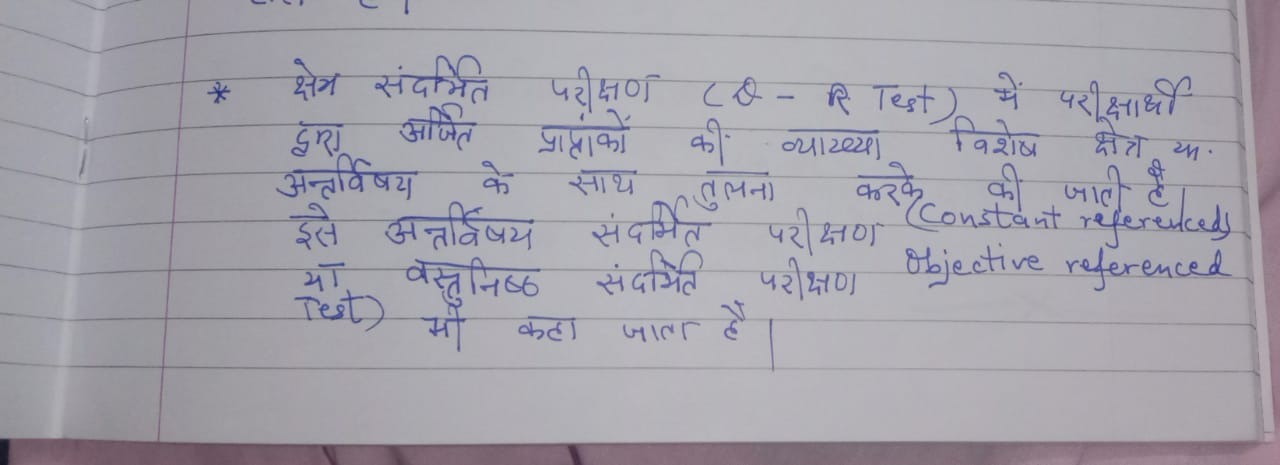 * क्षेत्र संदर्भित परीक्षण (D - R Test) में परीक्षार्थी
द्वारा अर्जित प्राप्तांकों की व्याख्या विशेष क्षेत्र या
अन्तर्विषय के साथ तुलना करके की जाती है।
इसे अन्तर्विषय संदर्भित परीक्षण (Constant referenced)
या वस्तुनिष्ठ संदर्भित परीक्षण Objective referenced
Test) भी कहा जाता है।